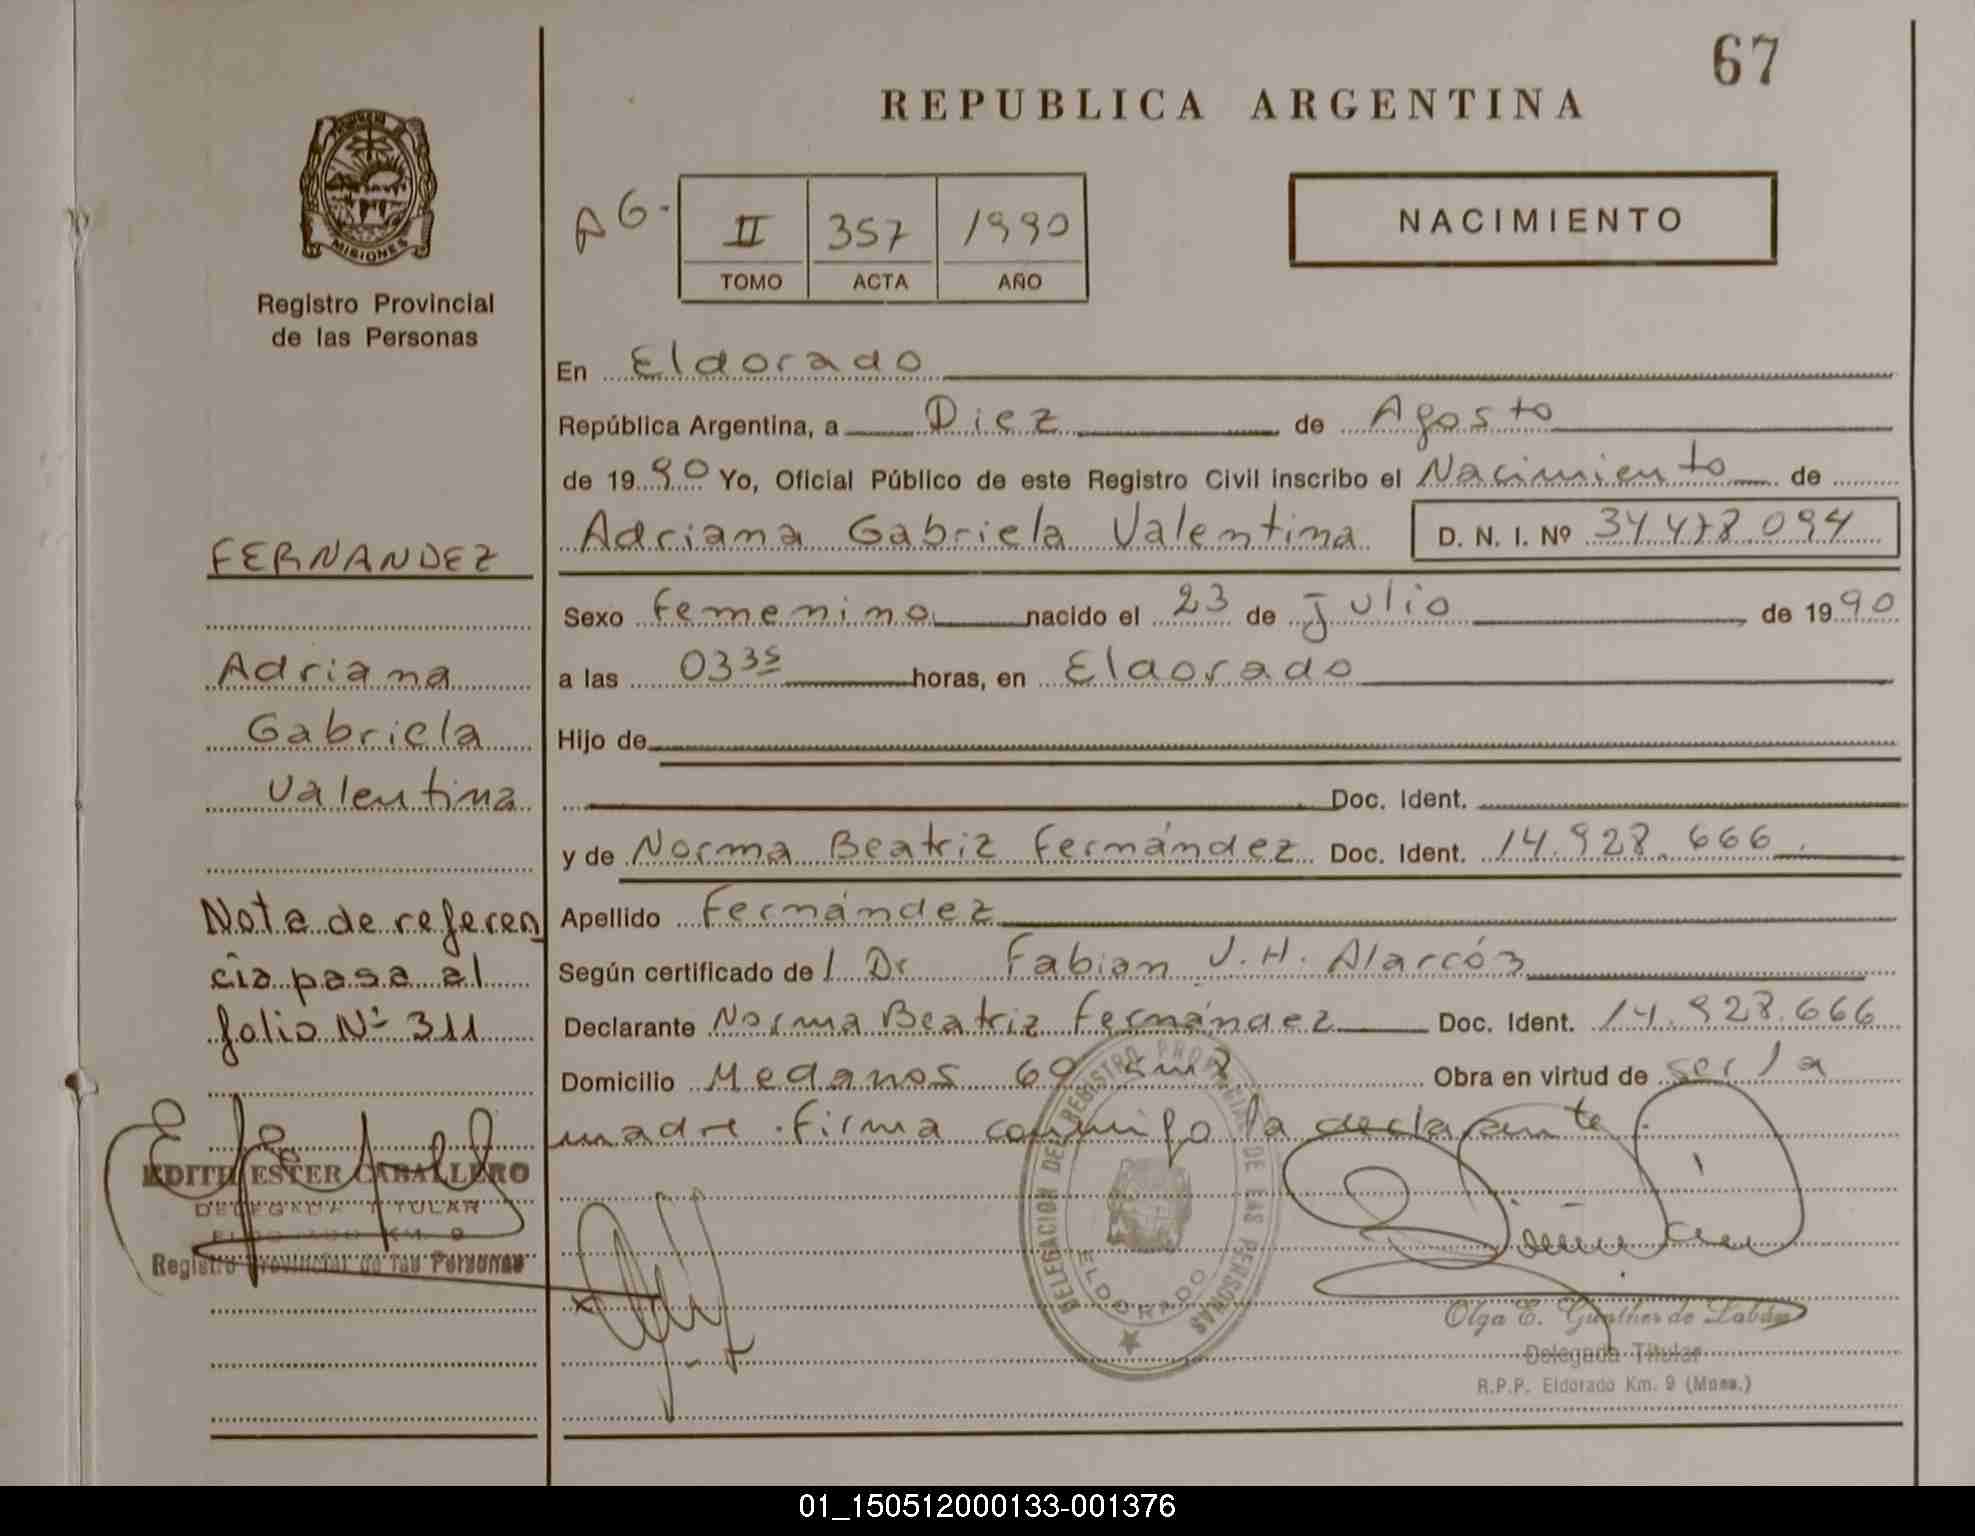 67
REPUBLICA ARGENTINA
MISIONES
Registro Provincial
de las Personas
AG-
II 357 1990
TOMO ACTA AÑO
NACIMIENTO
En Eldorado
República Argentina, a Diez de Agosto
de 1990 Yo, Oficial Público de este Registro Civil inscribo el Nacimiento de
Adriana Gabriela Valentina D. N. I. Nº 34.478.094
Sexo Femenino nacido el 23 de Julio de 1990
a las 03 35 horas, en Eldorado
Hijo de
Doc. Ident.
y de Norma Beatriz Fernández Doc. Ident. 14.928.666.
Apellido Fernández
Según certificado de l Dr Fabian J.H. Alarcón
Declarante Norma Beatriz Fernández Doc. Ident. 14.928.666
Domicilio Medanos 60 km 8 Obra en virtud de ser la
madre. Firma conmigo la declarante.
FERNANDEZ
Adriana
Gabriela
Valentina
Nota de referen
cia pasa al
folio Nº 311
EDITH ESTER CABALLERO
DELEGADA TITULAR
ELDORADO KM. 9
Registro Provincial de las Personas
DELEGACION DEL REGISTRO PROVINCIAL DE LAS PERSONAS
ELDORADO
Olga E. Gunther de
Delegada Titular
R.P.P. Eldorado Km. 9 (Mnes.)
01_150512000133-001376